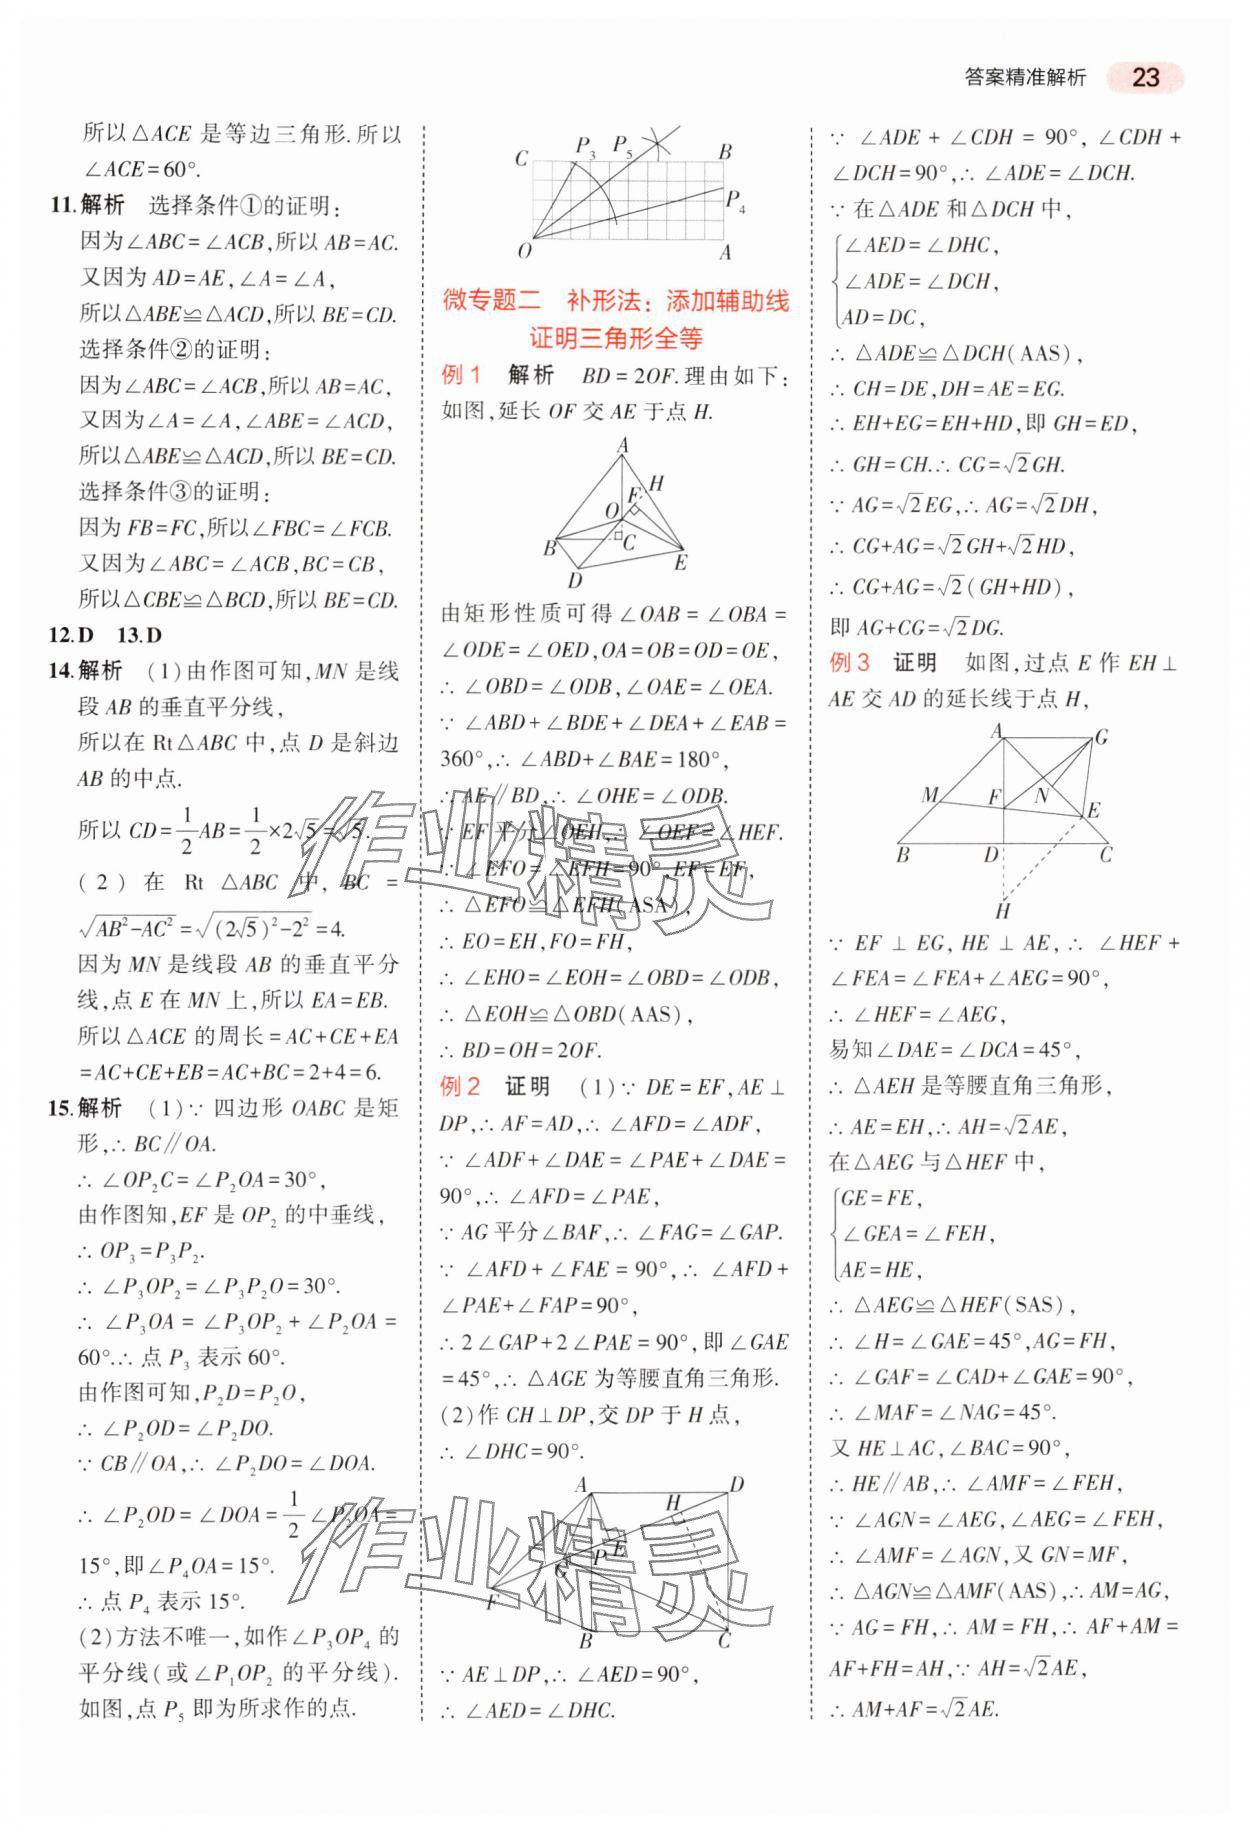 答案精准解析 23
所以△ACE 是等边三角形.所以
∠ACE=60°.
11.解析 选择条件①的证明:
因为∠ABC=∠ACB,所以 AB=AC.
又因为 AD=AE,∠A=∠A,
所以△ABE≌△ACD,所以 BE=CD.
选择条件②的证明:
因为∠ABC=∠ACB,所以 AB=AC,
又因为∠A=∠A,∠ABE=∠ACD,
所以△ABE≌△ACD,所以 BE=CD.
选择条件③的证明:
因为 FB=FC,所以∠FBC=∠FCB.
又因为∠ABC=∠ACB,BC=CB,
所以△CBE≌△BCD,所以 BE=CD.
12.D 13.D
14.解析 (1)由作图可知,MN 是线
段 AB 的垂直平分线,
所以在 Rt△ABC 中,点 D 是斜边
AB 的中点.
所以 CD=1/2AB=1/2×2√5=√5.
(2)在 Rt △ABC 中, BC =
√(AB²-AC²)=√((2√5)²-2²)=4.
因为 MN 是线段 AB 的垂直平分
线,点 E 在 MN 上,所以 EA=EB.
所以△ACE 的周长=AC+CE+EA
=AC+CE+EB=AC+BC=2+4=6.
15.解析 (1)∵ 四边形 OABC 是矩
形,∴ BC∥OA.
∴ ∠OP₂C=∠P₂OA=30°,
由作图知,EF 是 OP₂ 的中垂线,
∴ OP₃=P₃P₂.
∴ ∠P₃OP₂=∠P₃P₂O=30°.
∴ ∠P₃OA=∠P₃OP₂+∠P₂OA=
60°.∴ 点 P₃ 表示 60°.
由作图可知,P₂D=P₂O,
∴ ∠P₂OD=∠P₂DO.
∵ CB∥OA,∴ ∠P₂DO=∠DOA.
∴ ∠P₂OD=∠DOA=1/2∠P₂OA=
15°,即∠P₄OA=15°.
∴ 点 P₄ 表示 15°.
(2)方法不唯一,如作∠P₃OP₄ 的
平分线(或∠P₁OP₂ 的平分线).
如图,点 P₅ 即为所求作的点.
C P₃ P₅ B
P₄
O A
微专题二 补形法:添加辅助线
证明三角形全等
例 1 解析 BD=2OF.理由如下:
如图,延长 OF 交 AE 于点 H.
A
F H
O
B C
D E
由矩形性质可得∠OAB=∠OBA=
∠ODE=∠OED,OA=OB=OD=OE,
∴ ∠OBD=∠ODB,∠OAE=∠OEA.
∵ ∠ABD+∠BDE+∠DEA+∠EAB=
360°,∴ ∠ABD+∠BAE=180°,
∴ AE∥BD,∴ ∠OHE=∠ODB.
∵ EF 平分∠OEH,∴ ∠OEF=∠HEF.
∵ ∠EFO=∠EFH=90°,EF=EF,
∴ △EFO≌△EFH(ASA),
∴ EO=EH,FO=FH,
∴ ∠EHO=∠EOH=∠OBD=∠ODB,
∴ △EOH≌△OBD(AAS),
∴ BD=OH=2OF.
例 2 证明 (1)∵ DE=EF,AE⊥
DP,∴ AF=AD,∴ ∠AFD=∠ADF,
∵ ∠ADF+∠DAE=∠PAE+∠DAE=
90°,∴ ∠AFD=∠PAE,
∵ AG 平分∠BAF,∴ ∠FAG=∠GAP.
∵ ∠AFD+∠FAE=90°,∴ ∠AFD+
∠PAE+∠FAP=90°,
∴ 2∠GAP+2∠PAE=90°,即∠GAE
=45°,∴ △AGE 为等腰直角三角形.
(2)作 CH⊥DP,交 DP 于 H 点,
∴ ∠DHC=90°.
A D
H
G P E
F
B C
∵ AE⊥DP,∴ ∠AED=90°,
∴ ∠AED=∠DHC.
∵ ∠ADE+∠CDH=90°,∠CDH+
∠DCH=90°,∴ ∠ADE=∠DCH.
∵ 在△ADE 和△DCH 中,
∠AED=∠DHC,
∠ADE=∠DCH,
AD=DC,
∴ △ADE≌△DCH(AAS),
∴ CH=DE,DH=AE=EG.
∴ EH+EG=EH+HD,即 GH=ED,
∴ GH=CH.∴ CG=√2GH.
∵ AG=√2EG,∴ AG=√2DH,
∴ CG+AG=√2GH+√2HD,
∴ CG+AG=√2(GH+HD),
即 AG+CG=√2DG.
例 3 证明 如图,过点 E 作 EH⊥
AE 交 AD 的延长线于点 H,
A G
M F N E
B D C
H
∵ EF⊥EG,HE⊥AE,∴ ∠HEF+
∠FEA=∠FEA+∠AEG=90°,
∴ ∠HEF=∠AEG,
易知∠DAE=∠DCA=45°,
∴ △AEH 是等腰直角三角形,
∴ AE=EH,∴ AH=√2AE,
在△AEG 与△HEF 中,
GE=FE,
∠GEA=∠FEH,
AE=HE,
∴ △AEG≌△HEF(SAS),
∴ ∠H=∠GAE=45°,AG=FH,
∴ ∠GAF=∠CAD+∠GAE=90°,
∴ ∠MAF=∠NAG=45°.
又 HE⊥AC,∠BAC=90°,
∴ HE∥AB,∴ ∠AMF=∠FEH,
∵ ∠AGN=∠AEG,∠AEG=∠FEH,
∴ ∠AMF=∠AGN,又 GN=MF,
∴ △AGN≌△AMF(AAS),∴ AM=AG,
∵ AG=FH,∴ AM=FH,∴ AF+AM=
AF+FH=AH,∵ AH=√2AE,
∴ AM+AF=√2AE.
作业精灵
作业精灵